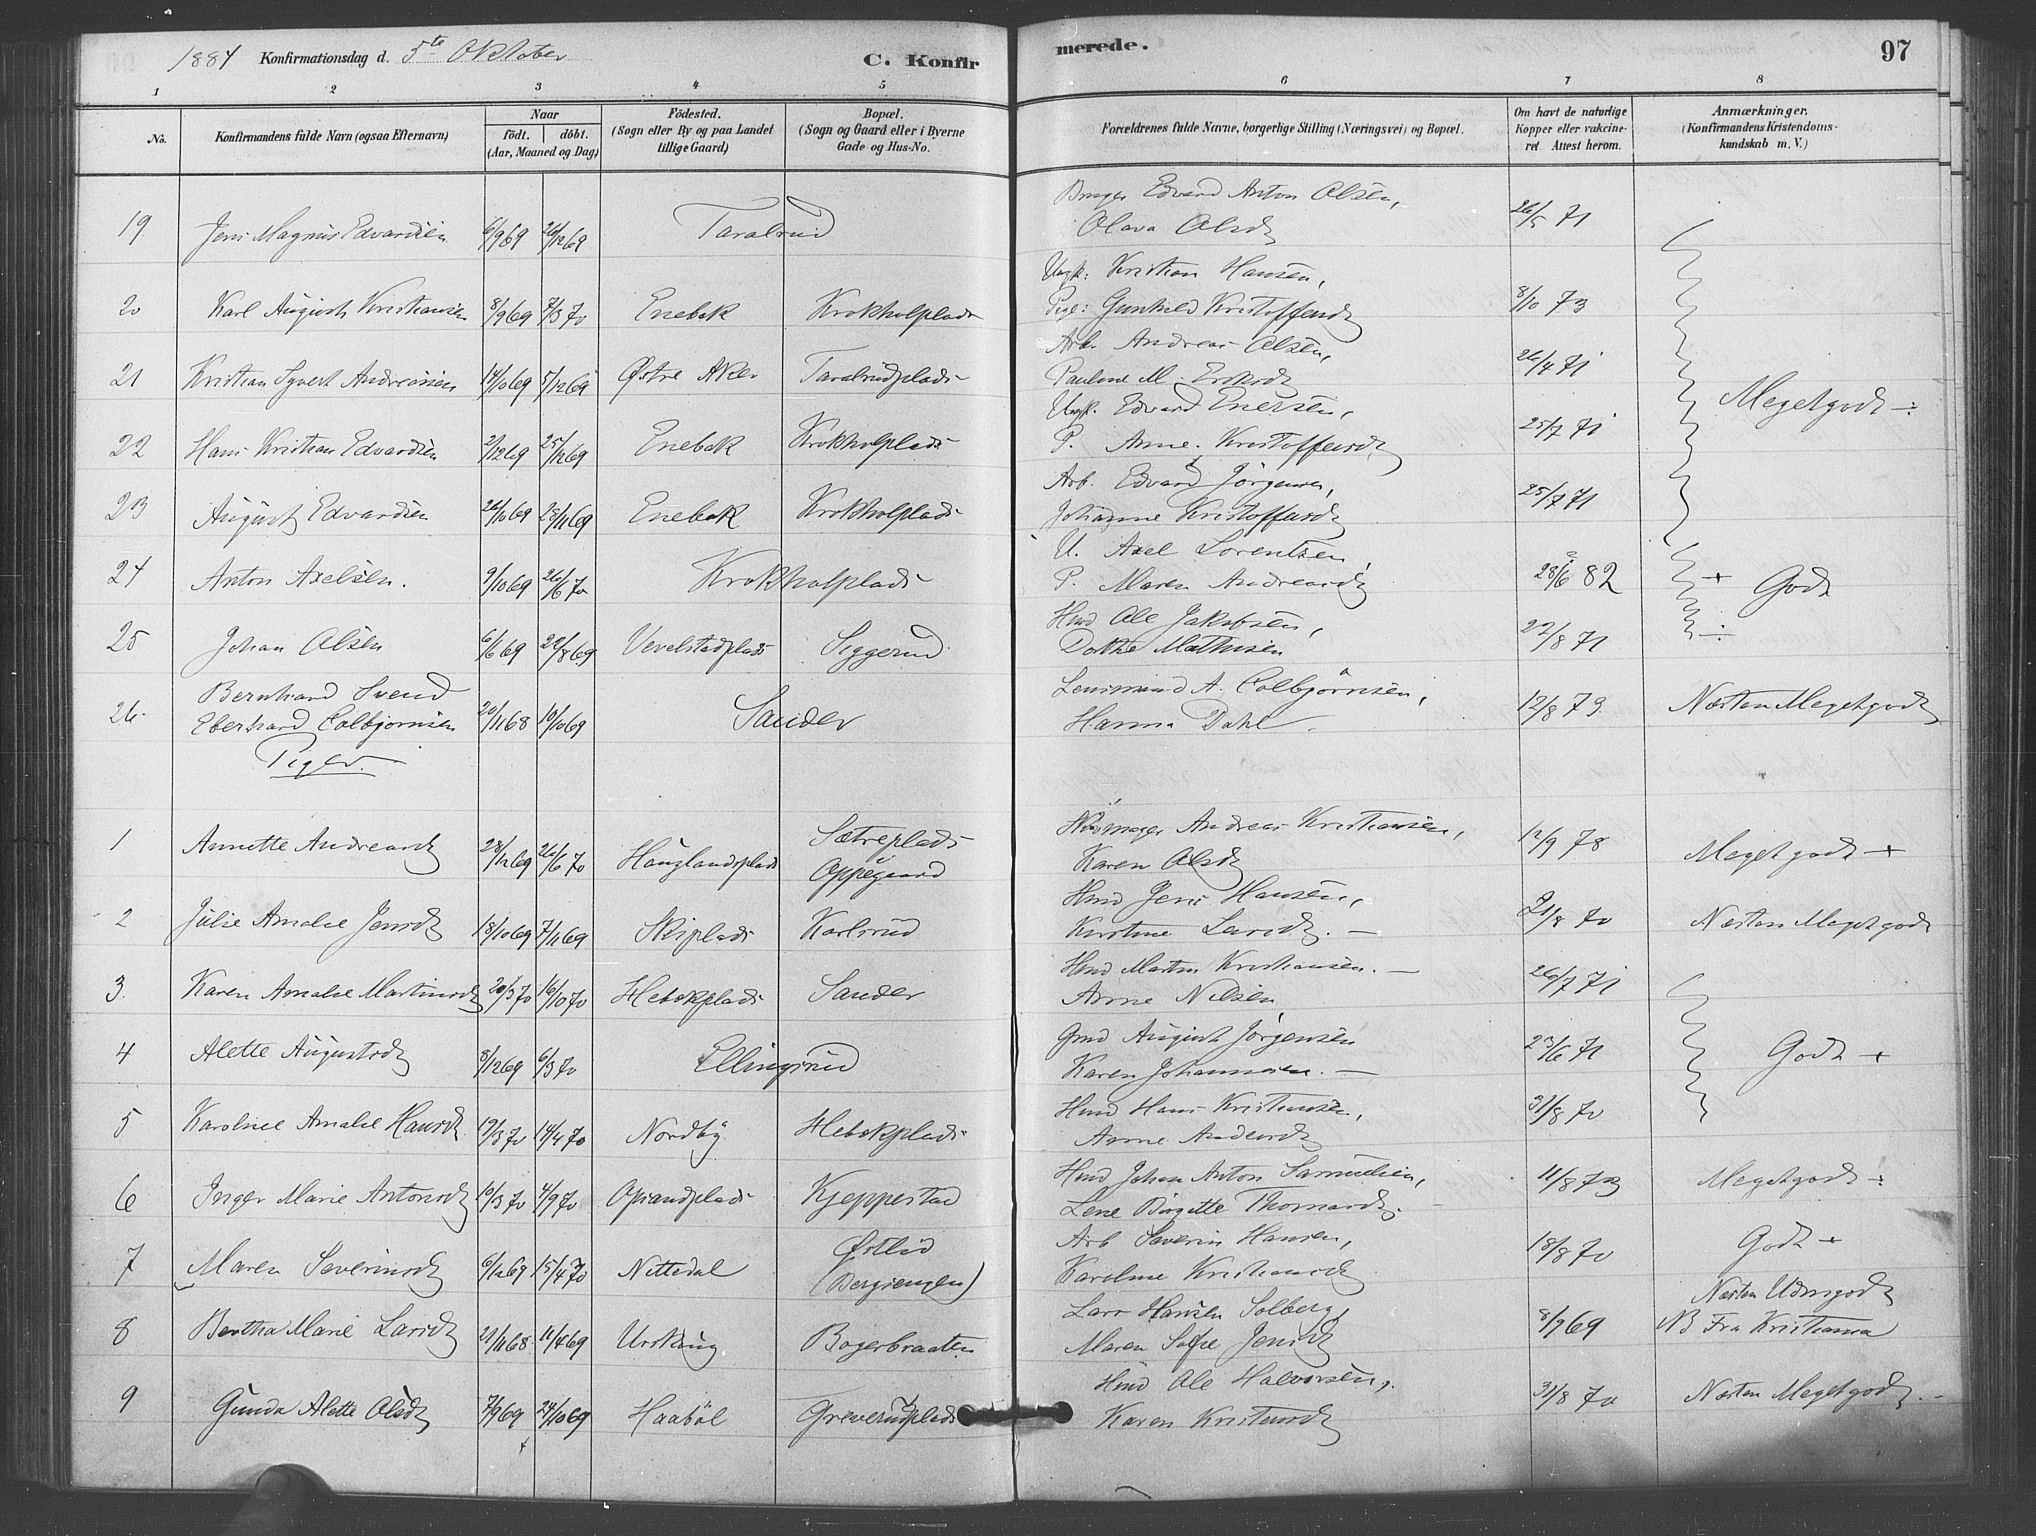 1884 Konfirmationsdag d. 5te Oktober C. Konfir merede. 97
1 2 3 4 5 6 7 8
No. Konfirmandens fulde Navn (ogsaa Efternavn) Naar födt. döbt. (Aar, Maaned og Dag) Födested. (Sogn eller By og paa Landet tillige Gaard) Bopæl. (Sogn og Gaard eller i Byerne Gade og Hus-No. Forældrenes fulde Navne, borgerlige Stilling (Næringsvei) og Bopæl. Om havt de naturlige Kopper eller vakcineret. Attest herom. Anmærkninger. (Konfirmandens Kristendomskundskab m. V.)
Bruger Edvard Anton Olsen,
19 Jens Magnus Edvardsen 6/9 69 26/12 69 Taralrud Olava Olsd 26/5 71
Ungk: Kristian Hansen,
20 Karl August Kristiansen 8/9 69 7/3 70 Enebak Krokholplads Pige: Gunhild Kristoffersd 8/10 73
Arb. Andreas Olsen,
21 Kristian Syvert Andreassen 14/10 69 5/12 69 Østre Aker Taralrudplads Pauline M. Eriksd 26/4 71 Megetgodt
Ungk. Edvard Enersen,
22 Hans Kristian Edvardsen 2/12 69 25/12 69 Enebak Krokholplads P. Anne Kristoffersd 25/7 71
Arb. Edvard Jörgensen,
23 August Edvardsen 24/10 69 28/11 69 Enebak Krokholplads Johanne Kristoffersd 25/7 71
U. Axel Lorentsen,
24 Anton Axelsen. 9/10 69 26/6 70 Krokholplads P. Maren Andreasd 28/6 82 + Godt
Hmd Ole Jakobsen,
25 Johan Olsen 6/6 69 22/8 69 Vevelstadplads Siggerud Dothe Mathisen 22/8 71
Bernhard Svend Lensmand A. Colbjørnsen,
26 Eberhard Colbjørnsen 20/11 68 10/10 69 Sander Hanna Dahl. 12/8 79 Næsten Megetgodt
Piger.
Sætreplads Andreas Kristiansen,
1 Annette Andreasd 28/12 69 26/6 70 Hauglandsplads Oppegaard Karen Olsd 12/9 78 Meget godt +
Hmd Jens Hansen,
2 Julie Amalie Jensd 18/10 69 7/11 69 Skiplads Karlsrud Kirstine Larsd. 21/8 70 Næsten Megetgodt
Hmd Martin Kristiansen.
3. Karen Amalie Martinsd 20/3 70 16/10 70 Hebekplads Sander Anne Nilsen 26/7 71
Gmd August Jørgensen
4 Alette Augustsd 8/12 69 6/3 70 Ellingsrud Karen Johannesen. 23/6 71 Godt +
Hmd Hans Kristiansen,
5 Karoline Amalie Hansd. 19/3 70 14/4 70 Nordby Hebekplads Anne Andersd 31/8 70
Hmd Johan Anton Samuelsen,
6 Inger Marie Antonsd 16/3 70 4/9 70 Opsandplads Kjeppestad Lene Birgitte Thomasd. 11/8 73 Megetgodt
Østlid Arb Severin Hansen, Godt +
7 Maren Severinsd 6/12 69 15/4 70 Nittedal (Bergiengen) Karoline Kristiansd 18/8 70
Lars Hansen Solberg, Næsten Udmgodt
8 Bertha Marie Larsd 21/11 68 11/4 69 Urskoug Bogerbraaten Maren Sofie Jensd 8/9 69 NB Fra Kristiania
Hmd Ole Halvorsen,
9 Gunda Alette Olsd 7/9 69 24/10 69 Haabøl Greverudplads Karen Kristensd 31/8 70 Næsten Megetgodt